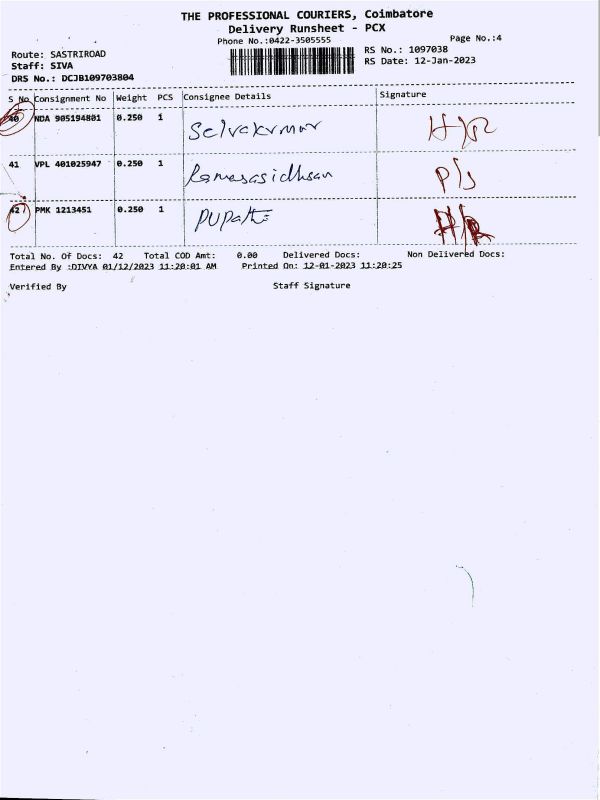 THE PROFESSIONAL COURIERS, Coimbatore
Delivery Runsheet - PCX
Phone No.:0422-3505555
Page No.:4
Route: SASTRIROAD
RS No.: 1097038
Staff: SIVA
RS Date: 12-Jan-2023
DRS No.: DCJB109703804
S No Consignment No Weight PCS Consignee Details Signature
40 NDA 905194801 0.250 1 Selvakumar
41 VPL 401025947 0.250 1 P/s
42 PMK 1213451 0.250 1
Total No. Of Docs: 42 Total COD Amt: 0.00 Delivered Docs: Non Delivered Docs:
Entered By :DIVYA 01/12/2023 11:20:01 AM Printed On: 12-01-2023 11:20:25
Verified By Staff Signature